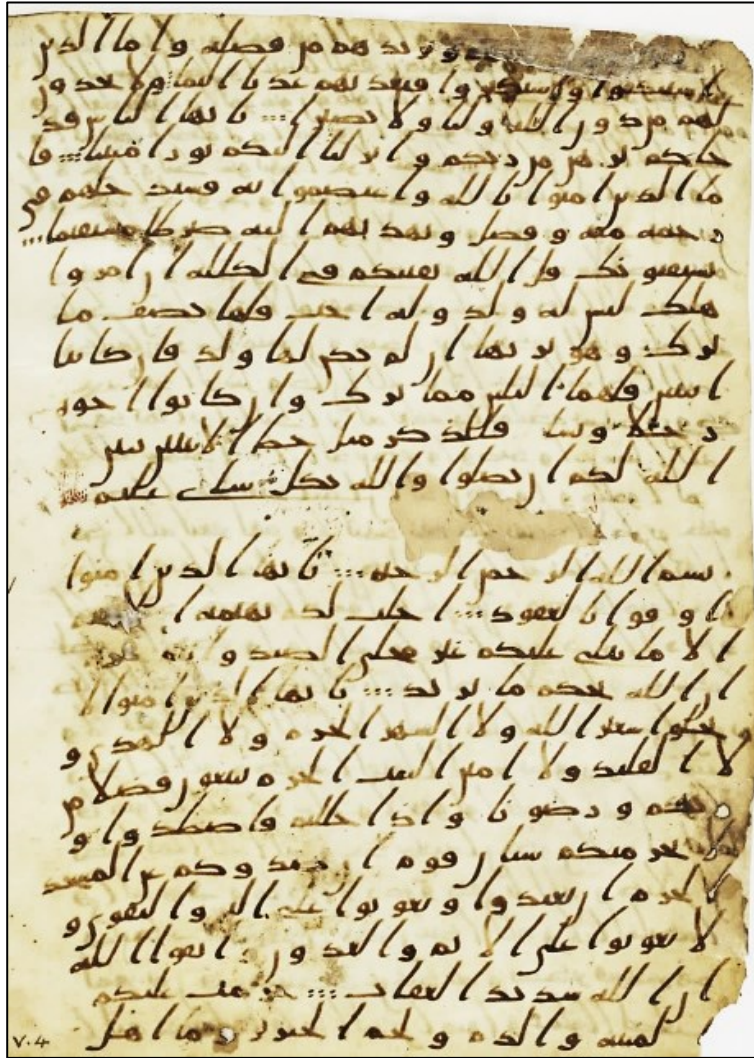 ويزيدهم من فضله واما الذين
استنكفوا واستكبروا فيعذبهم عذبا اليما ولا يجدون
لهم من دون الله وليا ولا نصيرا ؞ يايها الناس قد
جاكم برهن من ربكم وانزلنا اليكم نورا مبينا ؞ فا
ما الذين امنوا بالله واعتصموا به فسيدخلهم في
رحمة منه وفضل ويهديهم اليه صرطا مستقيما ؞
يستفتونك قل الله يفتيكم في الكللة ان امروا
هلك ليس له ولد وله اخت فلها نصف ما
ترك وهو يرثها ان لم يكن لها ولد فان كانتا
اثنتين فلهما الثلثن مما ترك وان كانوا اخوة
رجالا ونسا فللذكر مثل حظ الانثيين يبين
الله لكم ان تضلوا والله بكل شاي عليم
بسم الله الرحمن الرحيم ؞ يايها الذين امنوا
اوفوا بالعقود ؞ احلت لكم بهيمة
الا ما يتلى عليكم غير محلي الصيد وانتم حرم
ان الله يحكم ما يريد ؞ يايها الذين امنوا لا
تحلوا شعير الله ولا الشهر الحرم ولا الهدي و
لا القليد ولا امين البيت الحرم يبتغون فضلا من
ربهم ورضونا واذا حللتم فاصطدوا و
لا يجرمنكم شنان قوم ان صدوكم عن المسجد
الحرم ان تعتدوا وتعونوا على البر والتقوى و
لا تعونوا على الاثم والعدون واتقوا الله
ان الله شديد العقاب ؞ حرمت عليكم
الميتة والدم ولحم الخنزير وما اهل
V.4